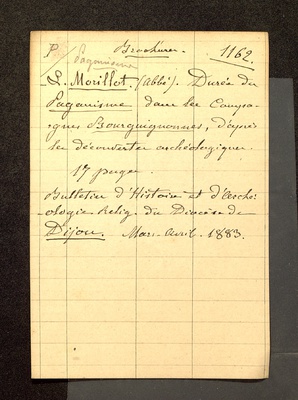 P. Brochures. 1162.
Paganisme
L. Morillot. (abbé). Durée du
Paganisme dans les Campa-
-gnes Bourguignonnes, d'après
les découvertes archéologiques.
17 pages.
Bulletin d'Histoire et d'Arché-
-ologie Relig. du Diocèse de
Dijon. Mars-Avril. 1883.